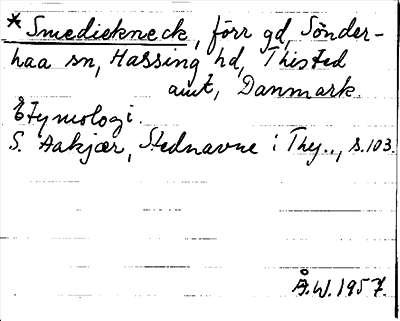 * Smediekneck, förr gd, Sönder-
haa sn, Hassing hd, Thisted
amt, Danmark.
Etymologi.
S. Aakjær, Stednavne i Thy.., s.103.
Å.W.1957.